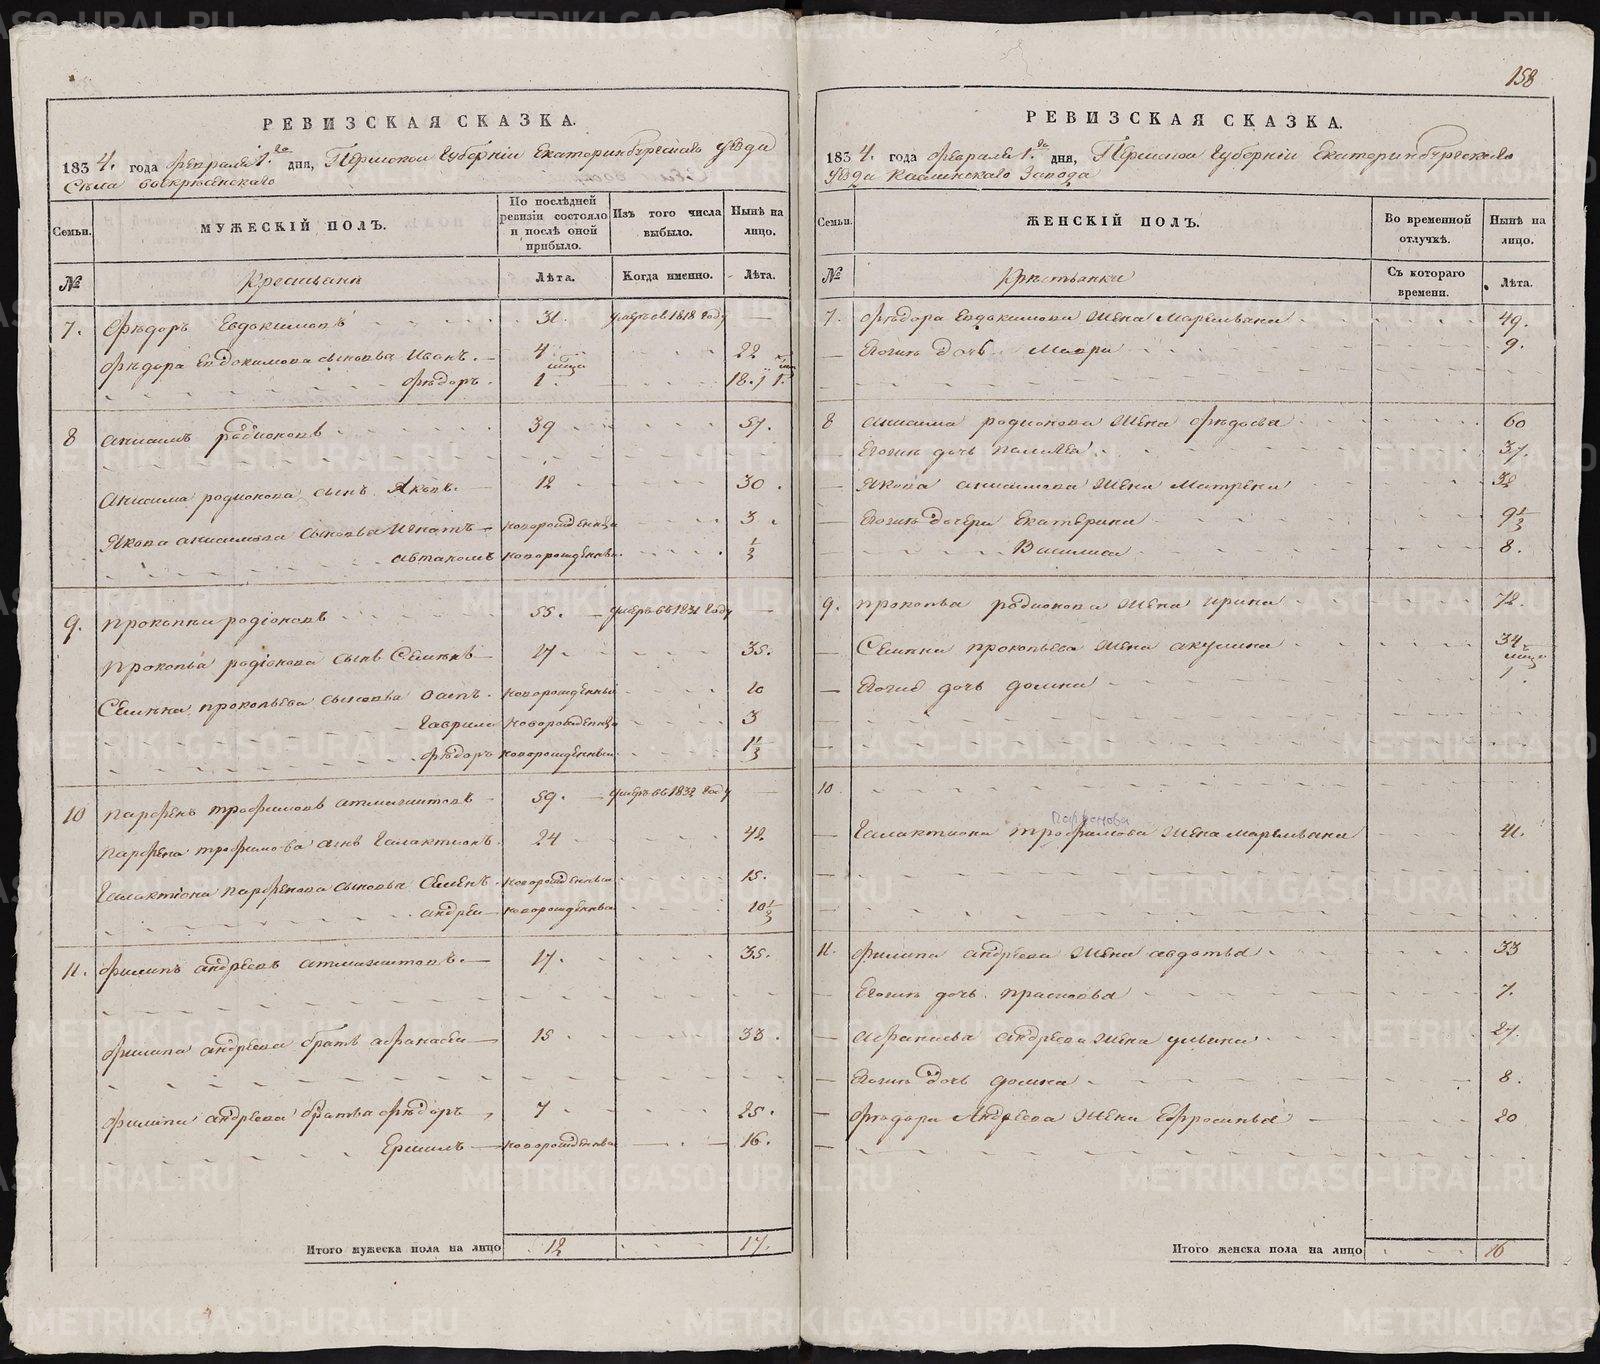 158
РЕВИЗСКАЯ СКАЗКА.
1834. года февраля 1го дня, Пермской Губерніи Екатеринбургскаго уѣзда
Села воскресенскаго
Семьи.
МУЖЕСКІЙ ПОЛЪ.
По послѣдней ревизіи состояло и послѣ оной прибыло.
Изъ того числа выбыло.
Нынѣ на лицо.
№
Крестьяне
Лѣта.
Когда именно.
Лѣта.
7. Ѳедоръ Евдокимовъ 31. умре въ 1818 году
Ѳедора Евдокимова сыновья Иванъ. 4 22
Ѳедоръ. 1. 18.
8 анисимъ родионовъ 39 57.
анисима родионова сынъ Яковъ. 12 30.
Якова анисимова сыновья Игнатъ новорожденный 3
автамонъ новорожденный ½
9. прокопий родіоновъ 55. умре въ 1831 году
прокопья родіонова сынъ Семенъ 17 35.
Семена прокопьева сыновья осипъ. новорожденный 10
Гаврило новорожденный 3
ѳедоръ новорожденный 1½
10 парфенъ трофимовъ 59. умре въ 1832 году
парфена трофимова сынъ Галактионъ. 24 42
Галактіона парфенова сыновья Семенъ. новорожденный 15.
андрей новорожденный 10½
11. филипъ андреевъ 17. 35.
филипа андреева братъ афанасей 15 33.
филипа андреева братья ѳедоръ 7 25.
Ермилъ новорожденный 16.
Итого мужеска пола на лицо 12 17.
РЕВИЗСКАЯ СКАЗКА.
1834. года февраля 1го дня, Пермской Губерніи Екатеринбургскаго
уѣзда Каслинскаго Завода
Семьи.
ЖЕНСКІЙ ПОЛЪ.
Во временной отлучкѣ.
Нынѣ на лицо.
№
Крестьянки
Съ котораго времени.
Лѣта.
7. Ѳедора Евдокимова жена Маремьяна 49.
Егожъ дочь Мавра 9.
8 анисима родионова жена ѳедосья 60
Егожъ дочь 37.
Якова анисимова жена Матрена 32
Егожъ дочери Екатерина 9½
Василиса 8.
9. прокопья родионова жена ирина 72.
Семена прокопьева жена акулина 34
Егожъ дочь домна
10
парфенова
Галактиона трофимова жена маремьяна 41.
11. филипа андреева жена авдотья 33
Егожъ дочь прасковья 7.
Афанасья андреева жена ульяна 27.
Егожъ дочь домна 8.
Ѳедора Андреева жена Ефросинья 20
Итого женска пола на лицо 16
METRIKI.GASO-URAL.RU